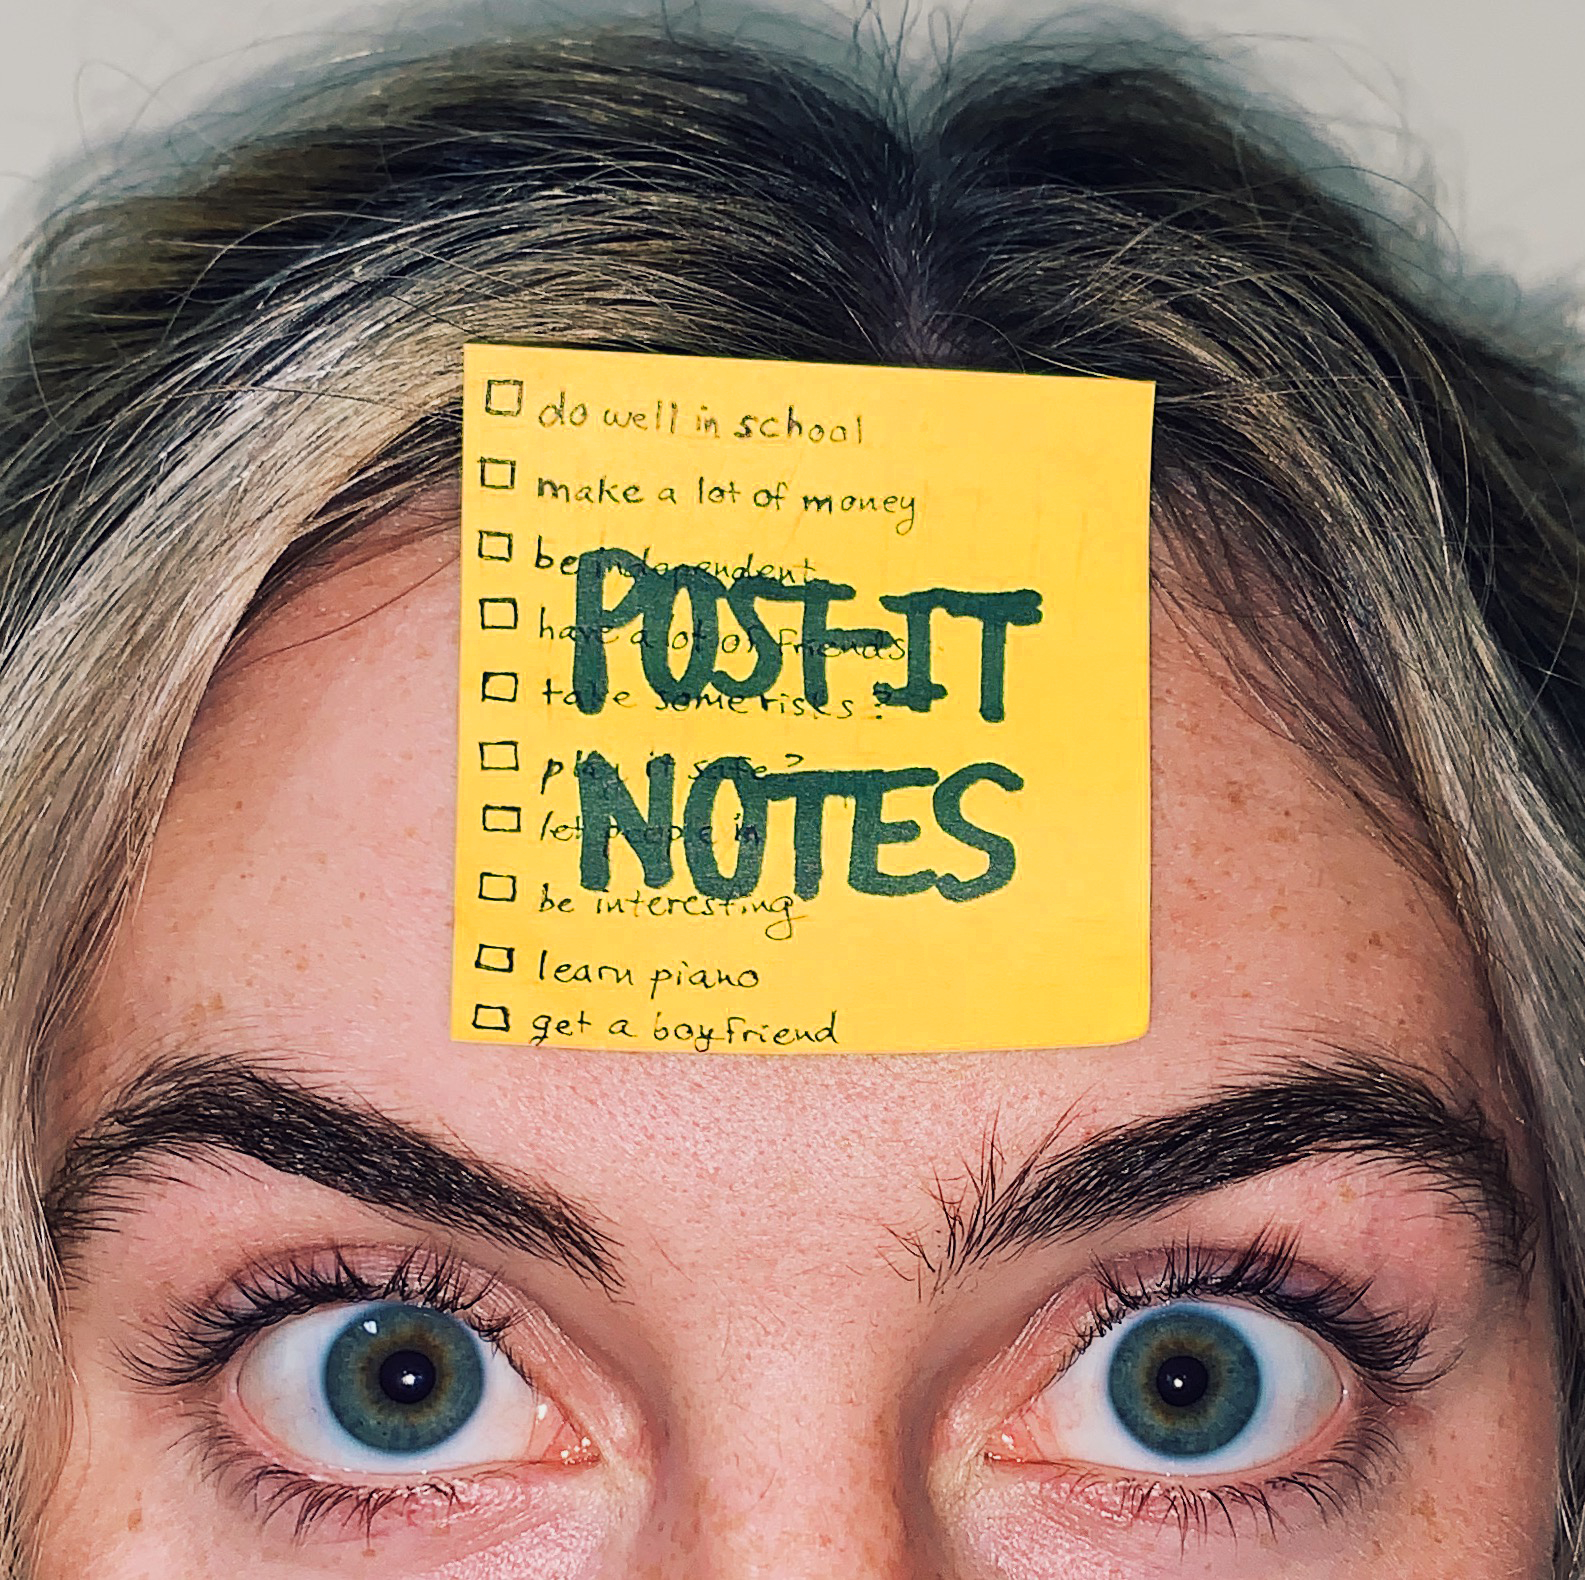 do well in school
make a lot of money
be independent
have a lot of friends
take some risks?
play it safe?
let people in
be interesting
learn piano
get a boyfriend
POST-IT
NOTES